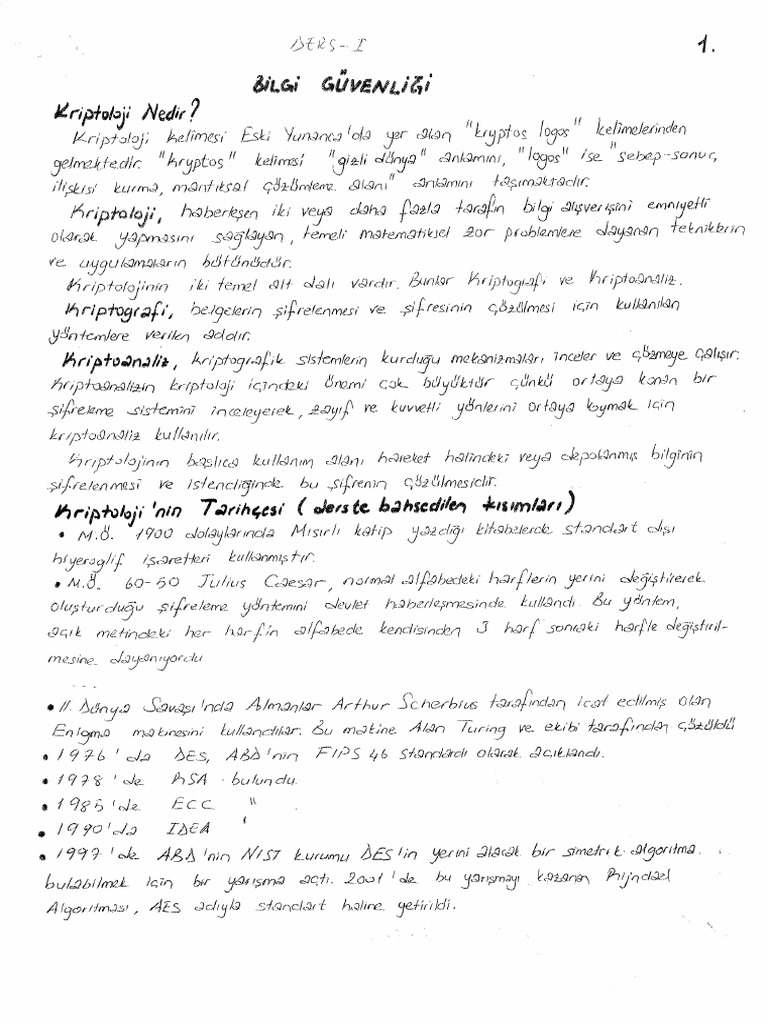 DERS-I
1.
BİLGİ GÜVENLİĞİ
Kriptoloji Nedir?
Kriptoloji kelimesi Eski Yunanca'da yer alan "kryptos logos" kelimelerinden
gelmektedir. "Kryptos" kelimesi "gizli dünya" anlamını, "logos" ise "sebep-sonuç,
ilişkisi kurma, mantıksal çözümleme alanı" anlamını taşımaktadır.
Kriptoloji, haberleşen iki veya daha fazla tarafın bilgi alışverişini emniyetli
olarak yapmasını sağlayan, temeli matematiksel zor problemlere dayanan tekniklerin
ve uygulamaların bütünüdür.
Kriptolojinin iki temel alt dalı vardır. Bunlar Kriptografi ve Kriptoanaliz.
Kriptografi, belgelerin şifrelenmesi ve şifresinin çözülmesi için kullanılan
yöntemlere verilen addır.
Kriptoanaliz, kriptografik sistemlerin kurduğu mekanizmaları inceler ve çözmeye çalışır.
Kriptoanalizin kriptoloji içindeki önemi çok büyüktür çünkü ortaya konan bir
şifreleme sistemini inceleyerek, zayıf ve kuvvetli yönlerini ortaya koymak için
kriptoanaliz kullanılır.
Kriptolojinin başlıca kullanım alanı hareket halindeki veya depolanmış bilginin
şifrelenmesi ve istendiğinde bu şifrenin çözülmesidir.
Kriptoloji'nin Tarihçesi (derste bahsedilen kısımları)
• M.Ö. 1900 dolaylarında Mısırlı katip yazdığı kitabelerde standart dışı
hiyeroglif işaretleri kullanmıştır.
• M.Ö. 60-50 Julius Caesar, normal alfabedeki harflerin yerini değiştirerek
oluşturduğu şifreleme yöntemini devlet haberleşmesinde kullandı. Bu yöntem,
açık metindeki her harfin alfabede kendisinden 3 harf sonraki harfle değiştiril-
mesine dayanıyordu
...
• II. Dünya Savaşı'nda Almanlar Arthur Scherbius tarafından icat edilmiş olan
Enigma makinesini kullandılar. Bu makine Alan Turing ve ekibi tarafından çözüldü
• 1976'da DES, ABD'nin FIPS 46 standardı olarak açıklandı.
• 1978'de RSA bulundu.
• 1985'de ECC "
• 1990'da IDEA "
• 1997'de ABD'nin NIST kurumu DES'in yerini alacak bir simetrik algoritma
bulabilmek için bir yarışma açtı. 2001'de bu yarışmayı kazanan Rijndael
Algoritması, AES adıyla standart haline getirildi.